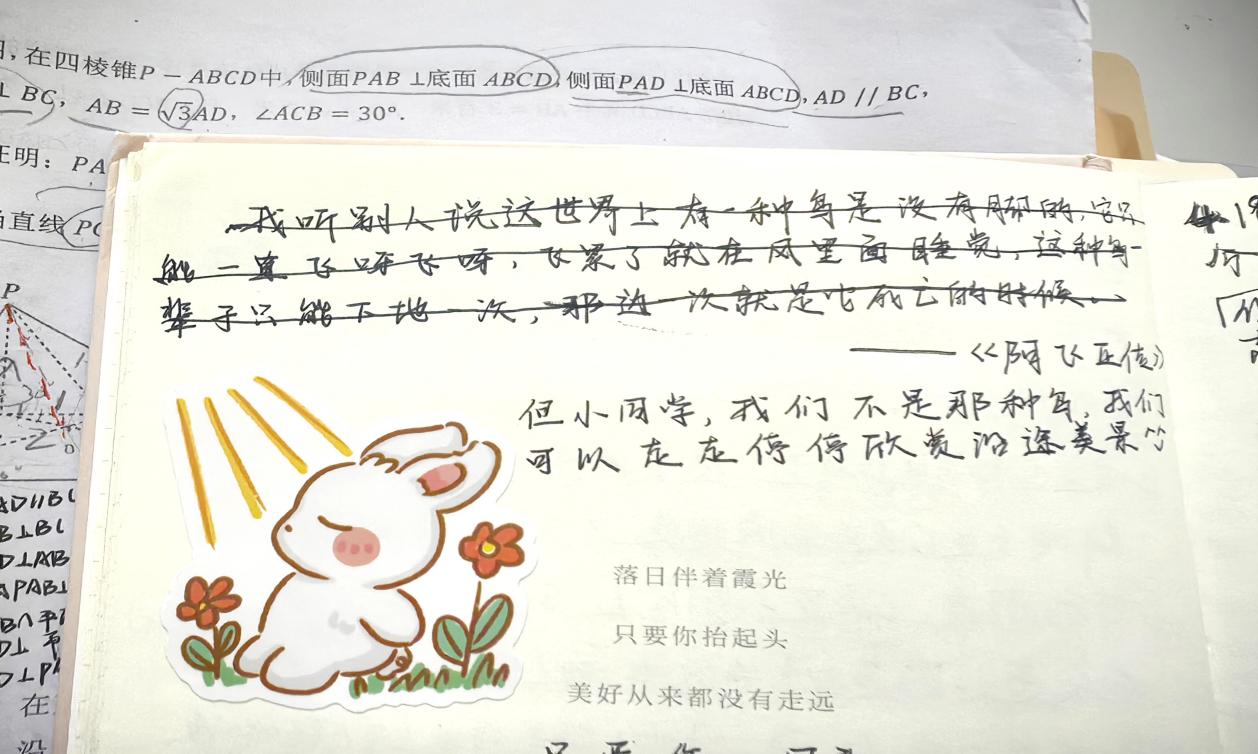 在四棱锥P－ABCD中,侧面PAB⊥底面ABCD,侧面PAD⊥底面ABCD,AD//BC,
⊥BC，AB=√3AD，∠ACB=30°.
证明：PA
直线PC
P
我听别人说这世界上有一种鸟是没有脚的,它只
能一直飞呀飞呀,飞累了就在风里面睡觉,这种鸟一
辈子只能下地一次,那边一次就是它死亡的时候。
——《阿飞正传》
但小同学,我们不是那种鸟,我们
可以走走停停欣赏沿途美景
落日伴着霞光
只要你抬起头
美好从来都没有走远
AD//BC
B⊥BC
D⊥AB
PAB⊥
B∩平面
D⊥平
D⊥PA
在
没